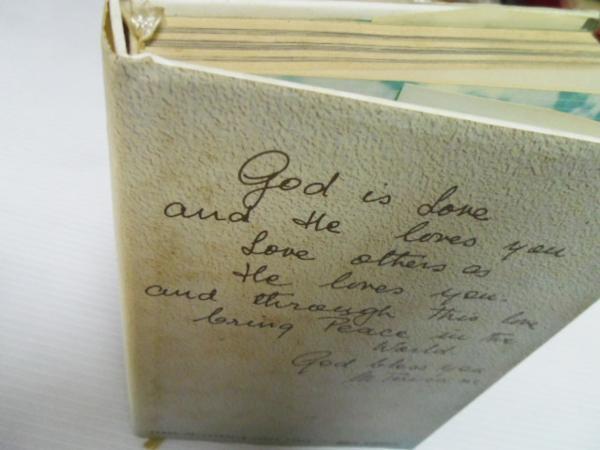 God is Love
and He loves you
Love others as
He loves you.
and through this love
bring Peace in the
World.
God bless you